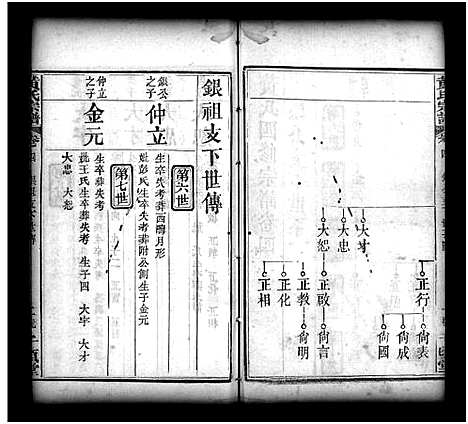 黃氏宗譜
卷四
大才
大忠
大恕
正行
正啟
正教
正化
正相
尙表
尙成
尙國
尙言
尙明
黃氏宗譜
卷四
銀祖支下世傳
第六世
銀公之子
仲立
生卒失考葬西醜月形
妣彭氏生卒失考葬附公側生子金元
第七世
仲立之子
金元
生卒葬失考
妣王氏生卒葬失考 生子四 大字 大才
大忠 大恕